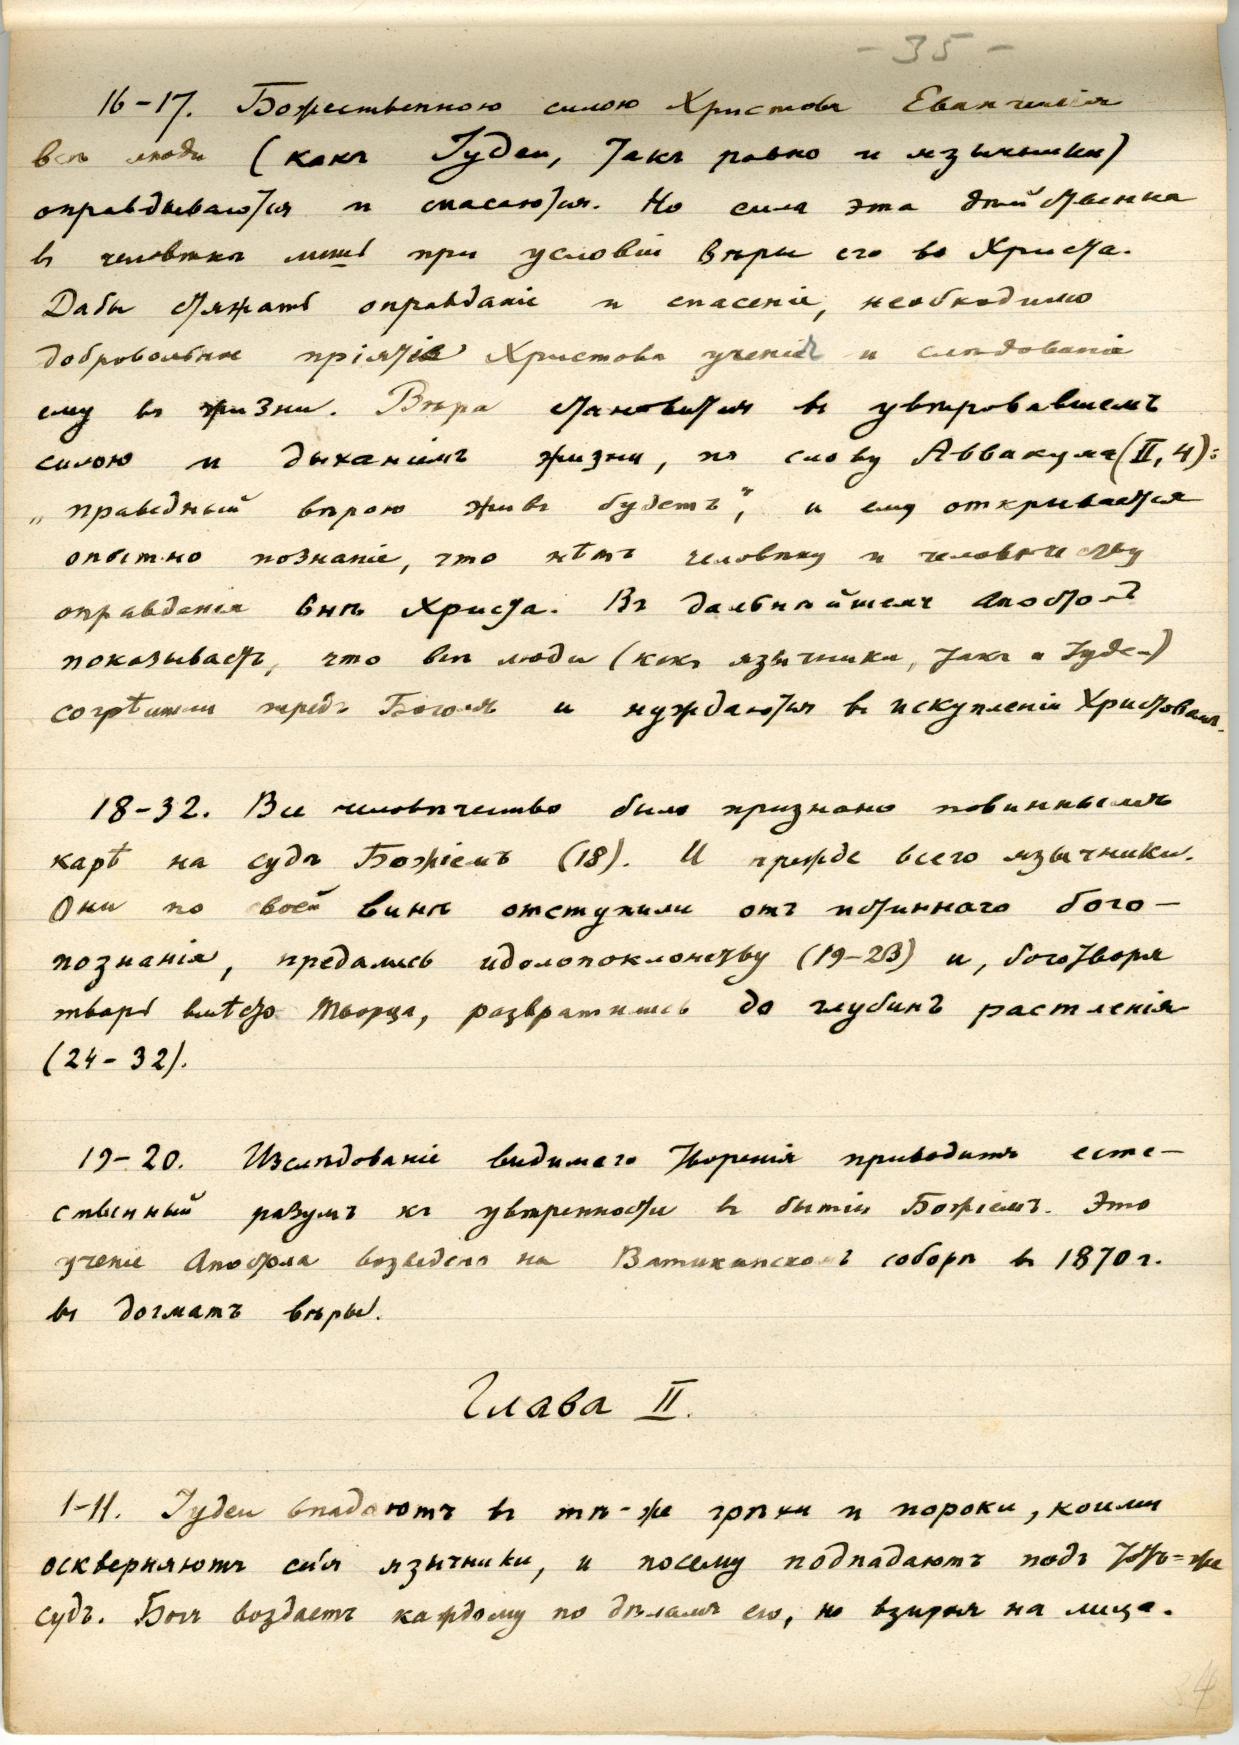 - 35 -
16-17. Божественною силою Христова Евангелія
всѣ люди (какъ Іудеи, такъ равно и язычники)
оправдываются и спасаются. Но сила эта дѣйственна
въ человѣкѣ лишь при условіи вѣры его во Христа.
Дабы стяжать оправданіе и спасеніе, необходимо
добровольное пріятіе Христова ученія и слѣдованіе
ему въ жизни. Вѣра становится въ увѣровавшемъ
силою и дыханіемъ жизни, по слову Аввакума (II, 4):
„праведный вѣрою живъ будетъ“, и ему открывается
опытно познаніе, что нѣтъ человѣку и человѣчеству
оправданія внѣ Христа. Въ дальнѣйшемъ Апостолъ
показываетъ, что всѣ люди (какъ язычники, такъ и Іудеи)
согрѣшили передъ Богомъ и нуждаются въ искупленіи Христовомъ.
18-32. Все человѣчество было признано повиннымъ
карѣ на судѣ Божіемъ (18). И прежде всего язычники.
Они по своей винѣ отступили отъ истиннаго бого-
познанія, предались идолопоклонству (19-23) и, боготворя
тварь вмѣсто Творца, развратились до глубинъ растленія
(24-32).
19-20. Изслѣдованіе видимаго творенія приводитъ есте-
ственный разумъ къ увѣренности въ бытіи Божіемъ. Это
ученіе Апостола возведено на Ватиканскомъ соборѣ въ 1870 г.
въ догматъ вѣры.
Глава II.
1-11. Іудеи впадаютъ въ тѣ-же грѣхи и пороки, коими
оскверняютъ себя язычники, и посему подпадаютъ подъ тотъ=же
судъ. Богъ воздастъ каждому по дѣламъ его, не взирая на лица.
34